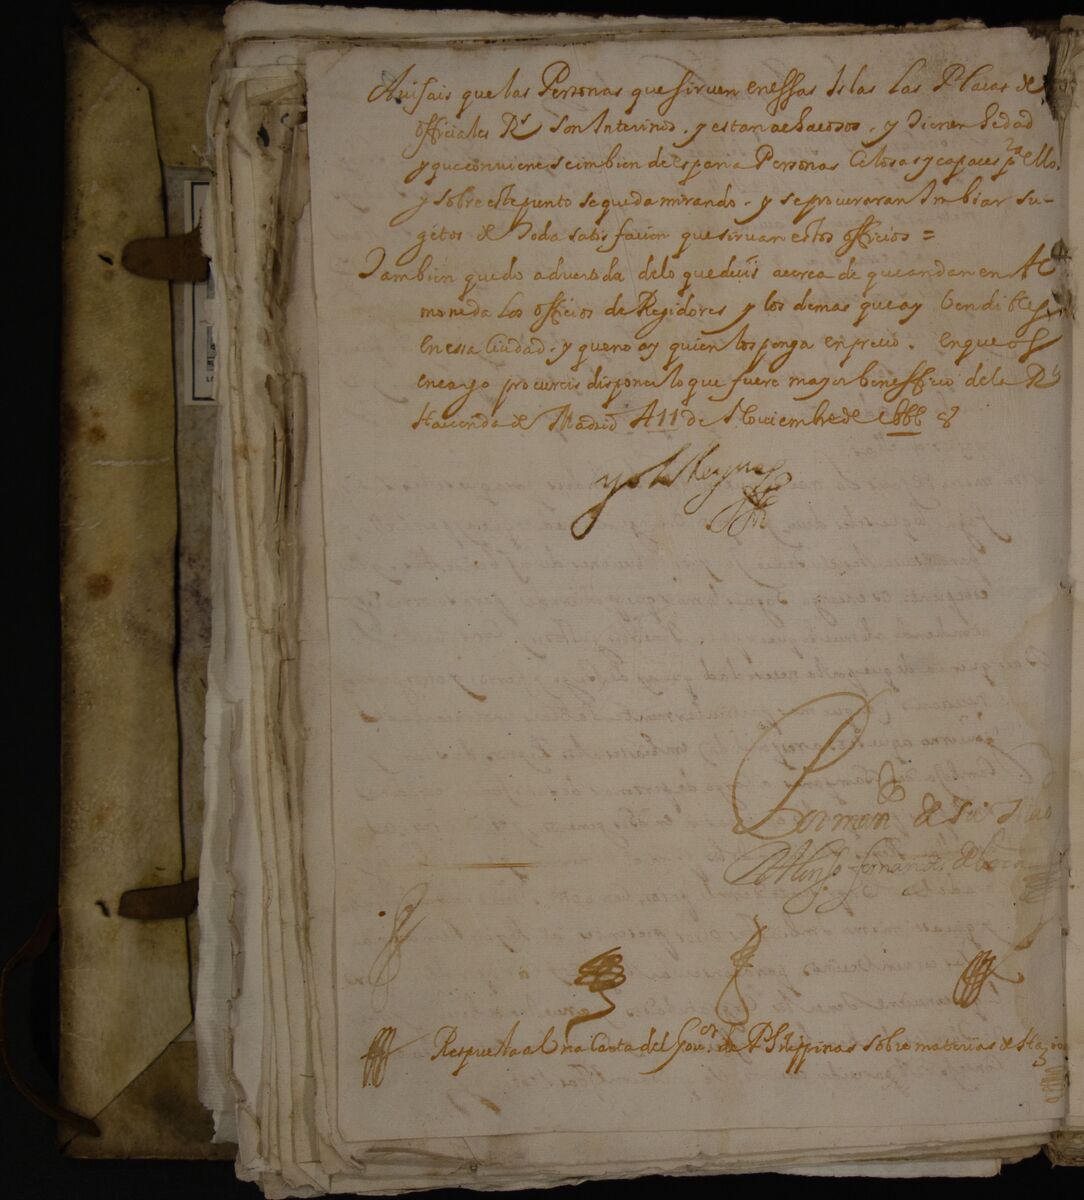 Auisais que las Personas que siruen en essas Islas las Plaças de
officiales Rs son Interinos, y estan achacosos, y tienen hedad
y que conuiene se imbien de españa Personas Celosas y capaces pa ello.
y sobre este punto se queda mirando, y se procuraran Inbiar su-
getos de toda satisfacion que siruan estos officios =
Tambien quedo aduertida de lo que deçis acerca de que andan en Al
moneda los officios de Regidores y los demas que ay Vendibles
en essa Ciudad, y que no ay quien los ponga en precio. en que os
encargo procureis disponer lo que fuere mayor beneffiçio de la Rl
Hacienda de Madrid A 11 de Nouiembre de
yo la Reyna
Por mando de su Magd
Alonso fernandez de lorca
Respuesta a Una Carta del Gouor de Philippinas sobre materias de Hazda